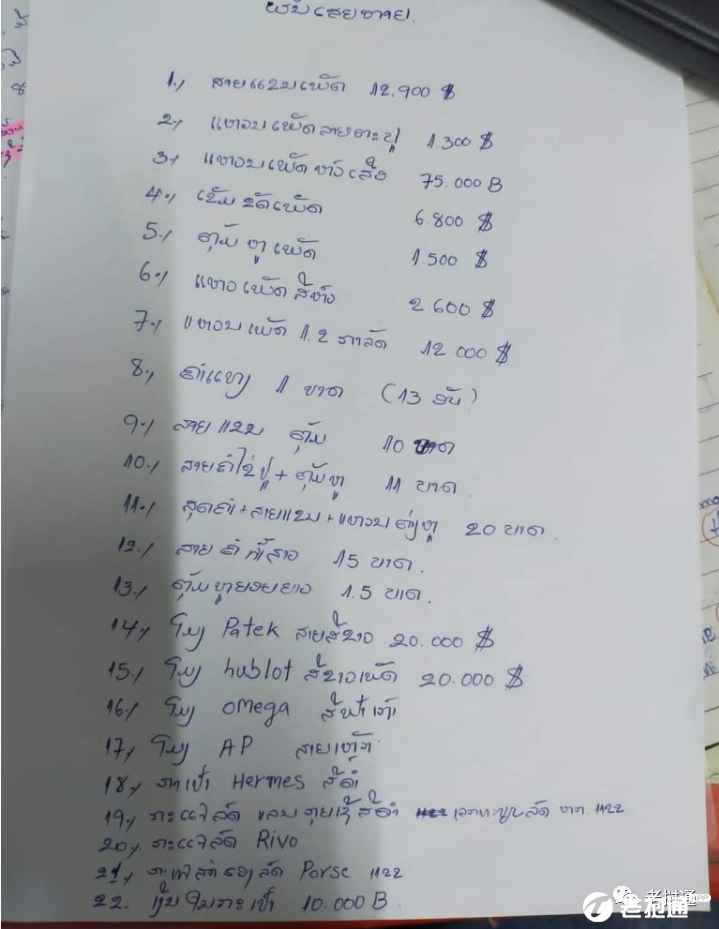 ຊັບເສຍຫາຍ.
1./ ສາຍແຂນເພັດ 12.900 $
2./ ແຫວນເພັດລາຍຕະປູ 1 300 $
3./ ແຫວນເພັດ 75.000 B
4./ ເຂັມຂັດເພັດ 6.800 $
5./ ຕຸ້ມຫູເພັດ 1.500 $
6./ ແຫວເພັດ 2.600 $
7./ ແຫວນເພັດ 1.2 ກາລັດ 12 000 $
8./ ຄຳແທ່ງ 1 ບາດ (13 ອັນ)
9./ ສາຍແຂນ ຕຸ້ມ 10 ບາດ
10./ ສາຍຄໍໄຂ່ປູ + ຕຸ້ມຫູ 11 ບາດ
11./ ສຸດຄໍ + ສາຍແຂນ + ແຫວນ 20 ບາດ.
12./ ສາຍຄໍ 15 ບາດ.
13./ ຕຸ້ມຫູຍອຍຍາວ 1.5 ບາດ.
14./ ໂມງ Patek ສາຍສີຂາວ 20.000 $
15./ ໂມງ hublot ສີຂາວເພັດ 20.000 $
16./ ໂມງ omega ສີຟ້າ
17./ ໂມງ AP ສາຍເຫຼັກ
18./ ກາເປົາ Hermes ສີດຳ
19./ ກະແຈລົດ ສີດຳ ເລກທະບຽນລົດ 1122
20./ ກະແຈລົດ Rivo
21./ ກະແຈສຳຮອງລົດ Porse 1122
22. ເງິນໃນກະເປົາ 10.000 B
老挝通
老挝通